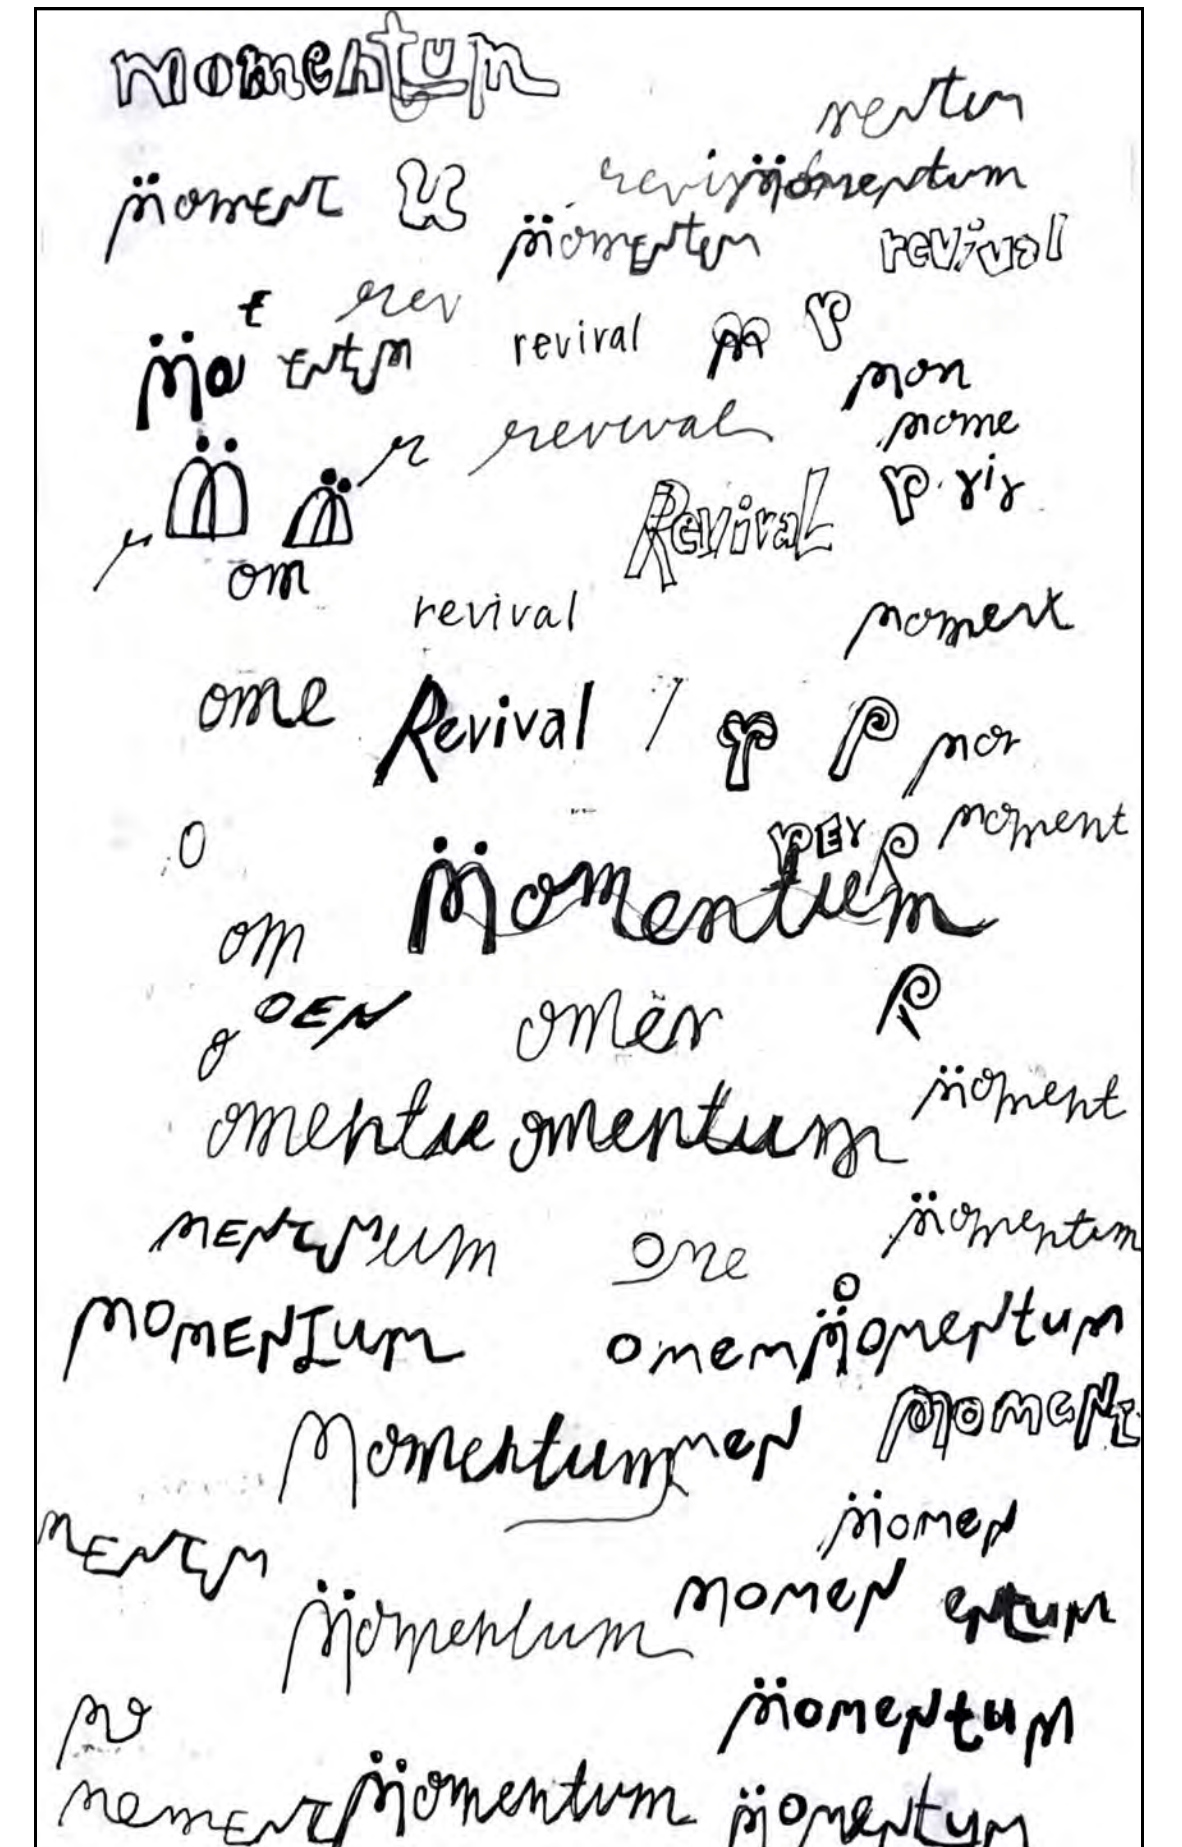 momentum
mentum
m̈oment u
revi m̈omentum
m̈omentum
revival
t rev
m̈o entm revival m r
mom
revival
mome
r
m̈ m̈
Revival
r
om
revival
moment
ome Revival r r mor
rer r moment
o
m̈omentum
om
oen
o
omër
R
m̈oment
omentu omentum
mentm um one m̈omentum
momentum omem m̈omentum
o
moment
momentum men
m̈omen
mentm
m̈omentum momen entum
mo m̈omentum
moment m̈omentum m̈omentum